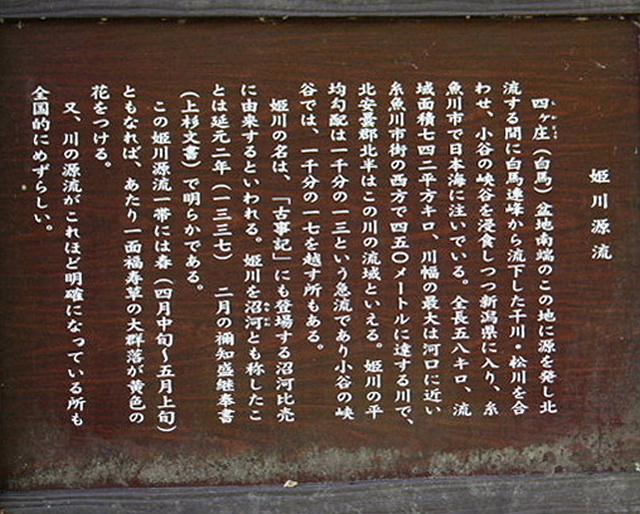 姫川源流
四ヶ庄（白馬）盆地南端のこの地に源を発し北
流する間に白馬連峰から流下した平川・松川を合
わせ、小谷の峡谷を浸食しつつ新潟県に入り、糸
魚川市で日本海に注いでいる。全長五八キロ、流
域面積七四二平方キロ、川幅の最大は河口に近い
糸魚川市街の西方で四五〇メートルに達する川で、
北安曇郡北半はこの川の流域といえる。姫川の平
均勾配は一千分の一三という急流であり小谷の峡
谷では、一千分の一七を越す所もある。
姫川の名は、「古事記」にも登場する沼河比売
に由来するといわれる。姫川を沼河とも称したこ
とは延元二年（一三三七）二月の禰知盛継奉書
（上杉文書）で明らかである。
この姫川源流一帯には春（四月中旬〜五月上旬）
ともなれば、あたり一面福寿草の大群落が黄色の
花をつける。
又、川の源流がこれほど明確になっている所も
全国的にめずらしい。